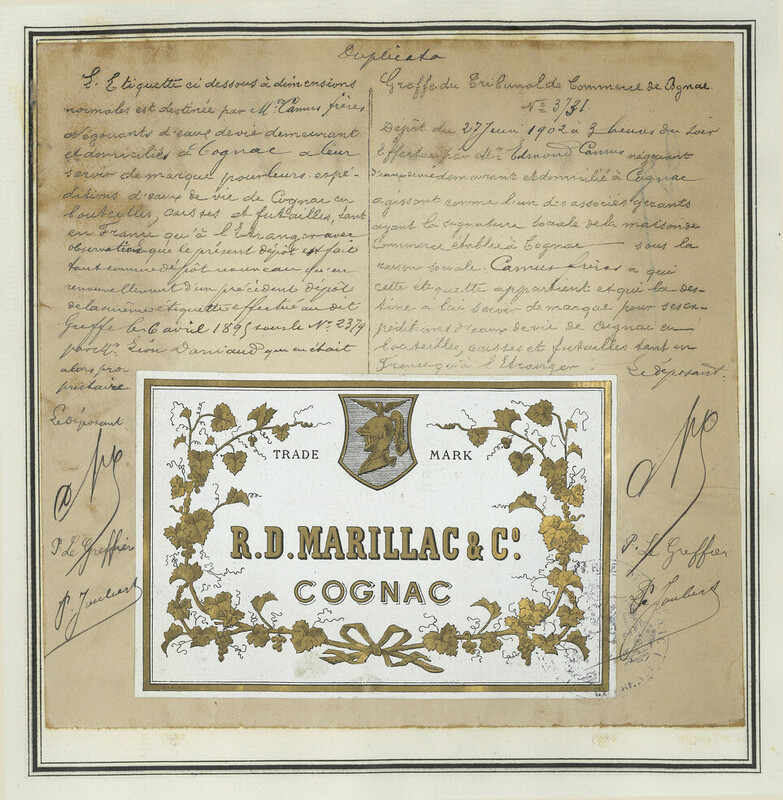 Duplicata
L'Etiquette ci dessous à dimensions
normales est destinée par Mrs Camus frères
négociants d'eaux de vie demeurant
et domiciliés à Cognac à leur
servir de marque pour leurs expé-
ditions d'eaux de vie de Cognac en
bouteilles, caisses et futailles, tant
en France qu'à l'Etranger avec
observation que le présent dépôt est fait
tant comme dépôt nouveau qu'en
renouvellement d'un précédent dépôt
de la même étiquette effectué au dit
Greffe le 6 avril 1895 sous le No 2379
par Mr Léon Daniaud qui en était
alors pro
priétaire
Le déposant
P. Le Greffier
P. Joubert
Greffe du Tribunal de Commerce de Cognac
No 3731
Dépôt du 27 Juin 1902 à 3 heures du soir
Effectué par Mr Edmond Camus négociant
d'eaux de vie demeurant et domicilié à Cognac
agissant comme l'un des associés gérants
ayant la signature sociale de la maison de
Commerce établie à Cognac sous la
raison sociale Camus frères à qui
cette étiquette appartient et qui la des-
tine à lui servir de marque pour ses ex-
péditions d'eaux de vie de Cognac en
bouteilles, caisses et futailles tant en
France qu'à l'Etranger.
Le déposant
P. Le Greffier
P. Joubert
TRADE MARK
R.D. MARILLAC & Co.
COGNAC